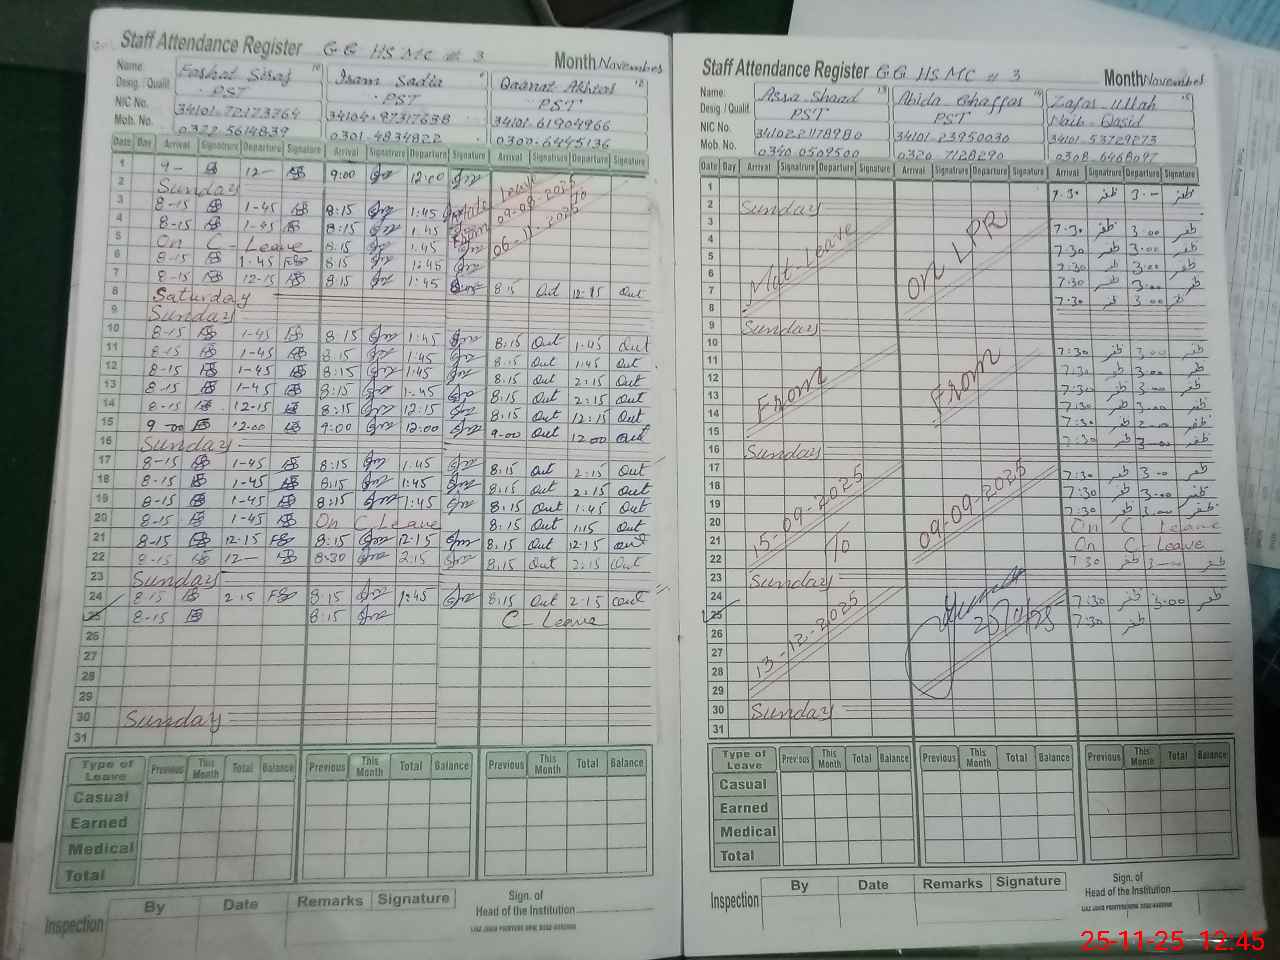 Staff Attendance Register GG HS MC # 3
Month November
Name. Farhat Siraj 10 Iram Sadia Qaanat Akhtar 12
Desig. / Qualif. PST PST PST
NIC No. 34101-72173764 34104-97317638 34101-61904966
Mob. No. 0322 5614839 0301-4834822 0300-6445136
Date Day Arrival Signatrure Departure Signature Arrival Signatrure Departure Signature Arrival Signatrure Departure Signature
1 9- 12- 9:00 12:00
2 Sunday
3 8-15 1-45 8:15 1:45
4 8-15 1-45 8:15 1:45
5 On C-Leave 8:15 1:45
6 8-15 1-45 8:15 1:45
7 8-15 12-15 8:15 1:45 8:15 Out 12-15 Out
Leave From 09-08-2025 To 06-11-2025
8 Saturday
9 Sunday
10 8-15 1-45 8:15 1:45 8:15 Out 1:45 Out
11 8-15 1-45 8:15 1:45 8:15 Out 1:45 Out
12 8-15 1-45 8:15 1:45 8:15 Out 2:15 Out
13 8-15 1-45 8:15 1-45 8:15 Out 2:15 Out
14 8-15 12-15 8:15 12:15 8:15 Out 12:15 Out
15 9-00 12-00 9:00 12:00 9-00 Out 12 00 Out
16 Sunday
17 8-15 1-45 8:15 1:45 8:15 Out 2:15 Out
18 8-15 1-45 8:15 1:45 8:15 Out 2:15 Out
19 8-15 1-45 8:15 1:45 8:15 Out 1:45 Out
20 8-15 1-45 On C Leave 8:15 Out 1:15 Out
21 8-15 12-15 8:15 12-15 8:15 Out 12-15 Out
22 8-15 12- 8-30 2:15 8:15 Out 2:15 Out
23 Sunday
24 8-15 2-15 8:15 1:45 8:15 Out 2-15 Out
25 8-15 8:15 C-Leave
26
27
28
29
30 Sunday
31
Type of Leave Previous This Month Total Balance Previous This Month Total Balance Previous This Month Total Balance
Casual
Earned
Medical
Total
Inspection By Date Remarks Signature
Sign. of
Head of the Institution
Staff Attendance Register GG HS MC # 3
Month November
Name. Assa Shaad 13 Abida Ghaffar 14 Zafar-ullah 15
Desig. / Qualif. PST PST Naib Qasid
NIC No. 3410221178980 34101-23950030 34101-53729273
Mob. No. 0340 0509500 0320 7128290 0308 6468097
Date Day Arrival Signatrure Departure Signature Arrival Signatrure Departure Signature Arrival Signatrure Departure Signature
1 7.30 ظفر 3.- ظفر
2 Sunday
3 7.30 ظفر 3.00 ظفر
4 7:30 ظفر 3:00 ظفر
5 7:30 ظفر 3:00 ظفر
6 7:30 ظفر 3:00 ظفر
7 7.30 ظفر 3 00 ظفر
8
Mat-Leave
on LPR
9 Sunday
10 7:30 ظفر 3.00 ظفر
11 7:30 ظفر 3.00 ظفر
12 7:30 ظفر 3:00 ظفر
13 7:30 ظفر 3-00 ظفر
14 7:30 ظفر ظفر
15 7:30 ظفر 3-00 ظفر
From From
16 Sunday
17 7:30 ظفر 3-00 ظفر
18 7:30 ظفر 3.00 ظفر
19 7:30 ظفر 3.00 ظفر
20 On C Leave
21 On C- Leave
22 7:30 ظفر 3-00 ظفر
15-09-2025 To 09-09-2025
23 Sunday
24 7:30 ظفر 3.00 ظفر
25 7:30 ظفر
13-12-2025
25/11/25
26
27
28
29
30 Sunday
31
Type of Leave Previous This Month Total Balance Previous This Month Total Balance Previous This Month Total Balance
Casual
Earned
Medical
Total
Inspection By Date Remarks Signature
Sign. of
Head of the Institution
25-11-25 12:45